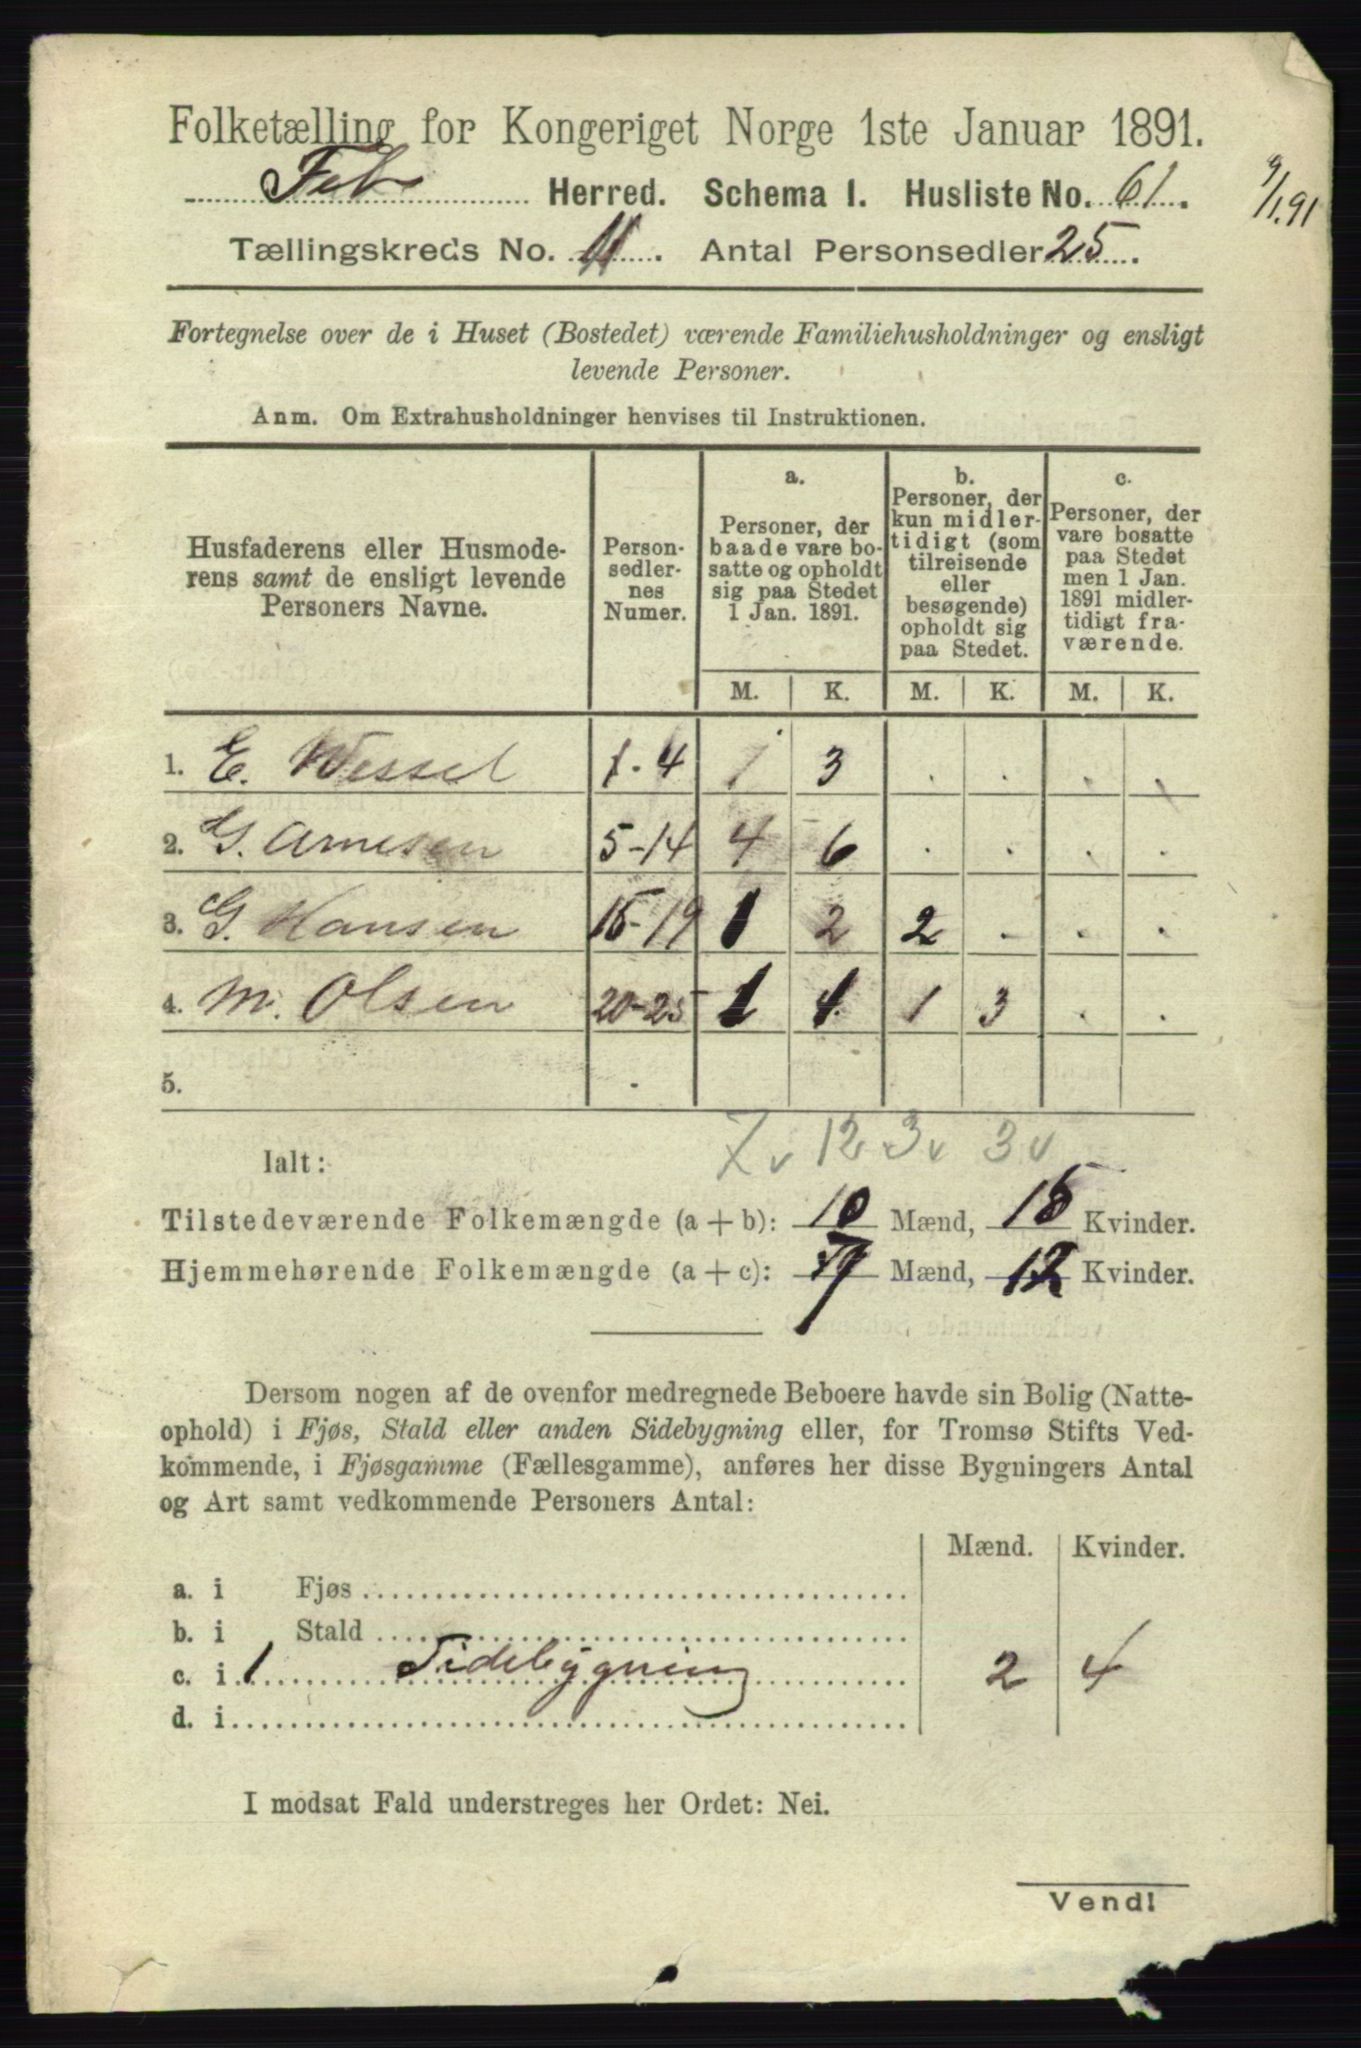 Folketælling for Kongeriget Norge 1ste Januar 1891.
Fet Herred. Schema I. Husliste No. 61.
9/1.91
Tællingskreds No. 11. Antal Personsedler 25.
Fortegnelse over de i Huset (Bostedet) værende Familiehusholdninger og ensligt
levende Personer.
Anm. Om Extrahusholdninger henvises til Instruktionen.
Husfaderens eller Husmode-
rens samt de ensligt levende
Personers Navne.
Person-
sedler-
nes
Numer.
a.
Personer, der
baade vare bo-
satte og opholdt
sig paa Stedet
1 Jan. 1891.
b.
Personer, der
kun midler-
tidigt (som
tilreisende
eller
besøgende)
opholdt sig
paa Stedet.
c.
Personer, der
vare bosatte
paa Stedet
men 1 Jan.
1891 midler-
tidigt fra-
værende.
M. K. M. K. M. K.
1. E. Wessel 1-4 1 3 . . . .
2. G. Arnesen 5-14 4 6 . . . .
3. G. Hansen 15-19 1 2 2 . . .
4. M. Olsen 20-25 1 1 1 3 . .
5. .
7 v 12 3 v 3 v
Ialt:
Tilstedeværende Folkemængde (a + b): 10 Mænd, 15 Kvinder.
Hjemmehørende Folkemængde (a + c): 7 Mænd, 12 Kvinder.
Dersom nogen af de ovenfor medregnede Beboere havde sin Bolig (Natte-
ophold) i Fjøs, Stald eller anden Sidebygning eller, for Tromsø Stifts Ved-
kommende, i Fjøsgamme (Fællesgamme), anføres her disse Bygningers Antal
og Art samt vedkommende Personers Antal:
Mænd. Kvinder.
a. i Fjøs
b. i Stald
c. i 1 Sidebygning 2 4
d. i
I modsat Fald understreges her Ordet: Nei.
Vend!